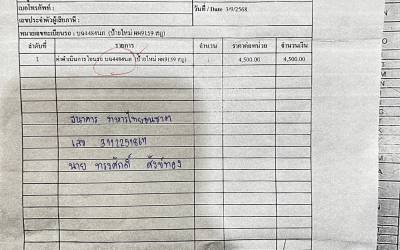 เบอโทรศัพท์ :
วันที่ / Date 3/9/2568
เลขประจำตัวผู้เสียภาษี :
หมายเลขทะเบียนรถ : บฉ4484นภ (ป้ายใหม่ ผผ9159 สฎ)
ลำดับที่ รายการ จำนวน ราคาต่อหน่วย จำนวนเงิน
1 ค่าดำเนินการโอนรถ บฉ4484นภ (ป้ายใหม่ ผผ9159 สฎ) 4,500.00 4,500.00
ธนาคาร ทหารไทยธนชาต
เลข 3112251867
นาย ทรงศักดิ์